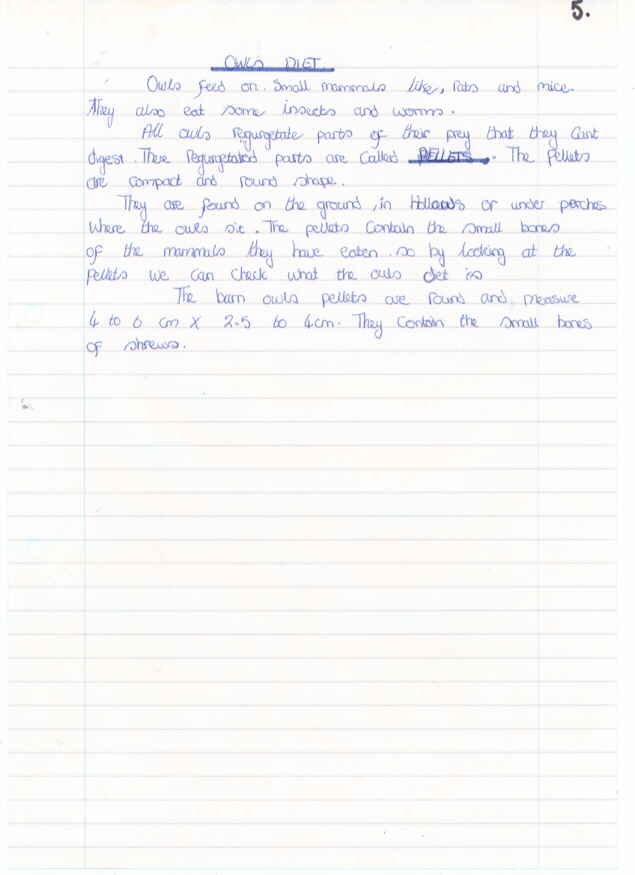 5.
OWLS DIET
Owls feed on. Small mammals like, Rats and mice.
They also eat some insects and worms.
All owls regurgetate parts of their prey that they Cant
digest. These Regurgetated parts are Called PELLETS. The Pellets
are compact and round shape.
They are found on the ground, in Hollows or under perches
Where the owls sit. The pellets Contain the small bones
of the mammals they have eaten. so by looking at the
Pellets we can check what the owls diet is
The barn owls pellets are round and measure
4 to 6 cm X 2.5 to 4cm. They Contain the small bones
of shrews.